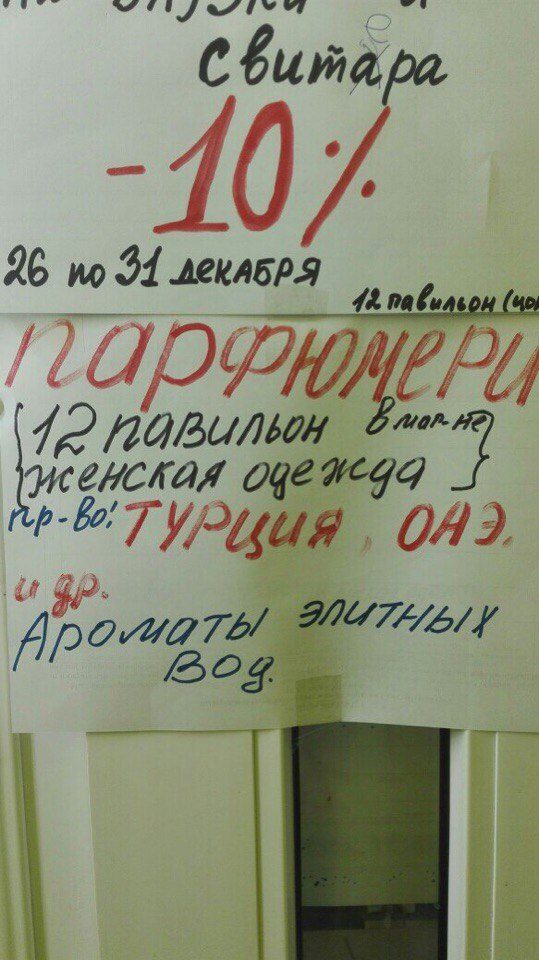 свитара
-10%
26 по 31 декабря
12 павильон (цок
ПАРФЮМЕРИ
{12 павильон в маг-не}
женская одежда
пр-во: ТУРЦИЯ, ОАЭ.
и др.
Ароматы элитных
Вод.